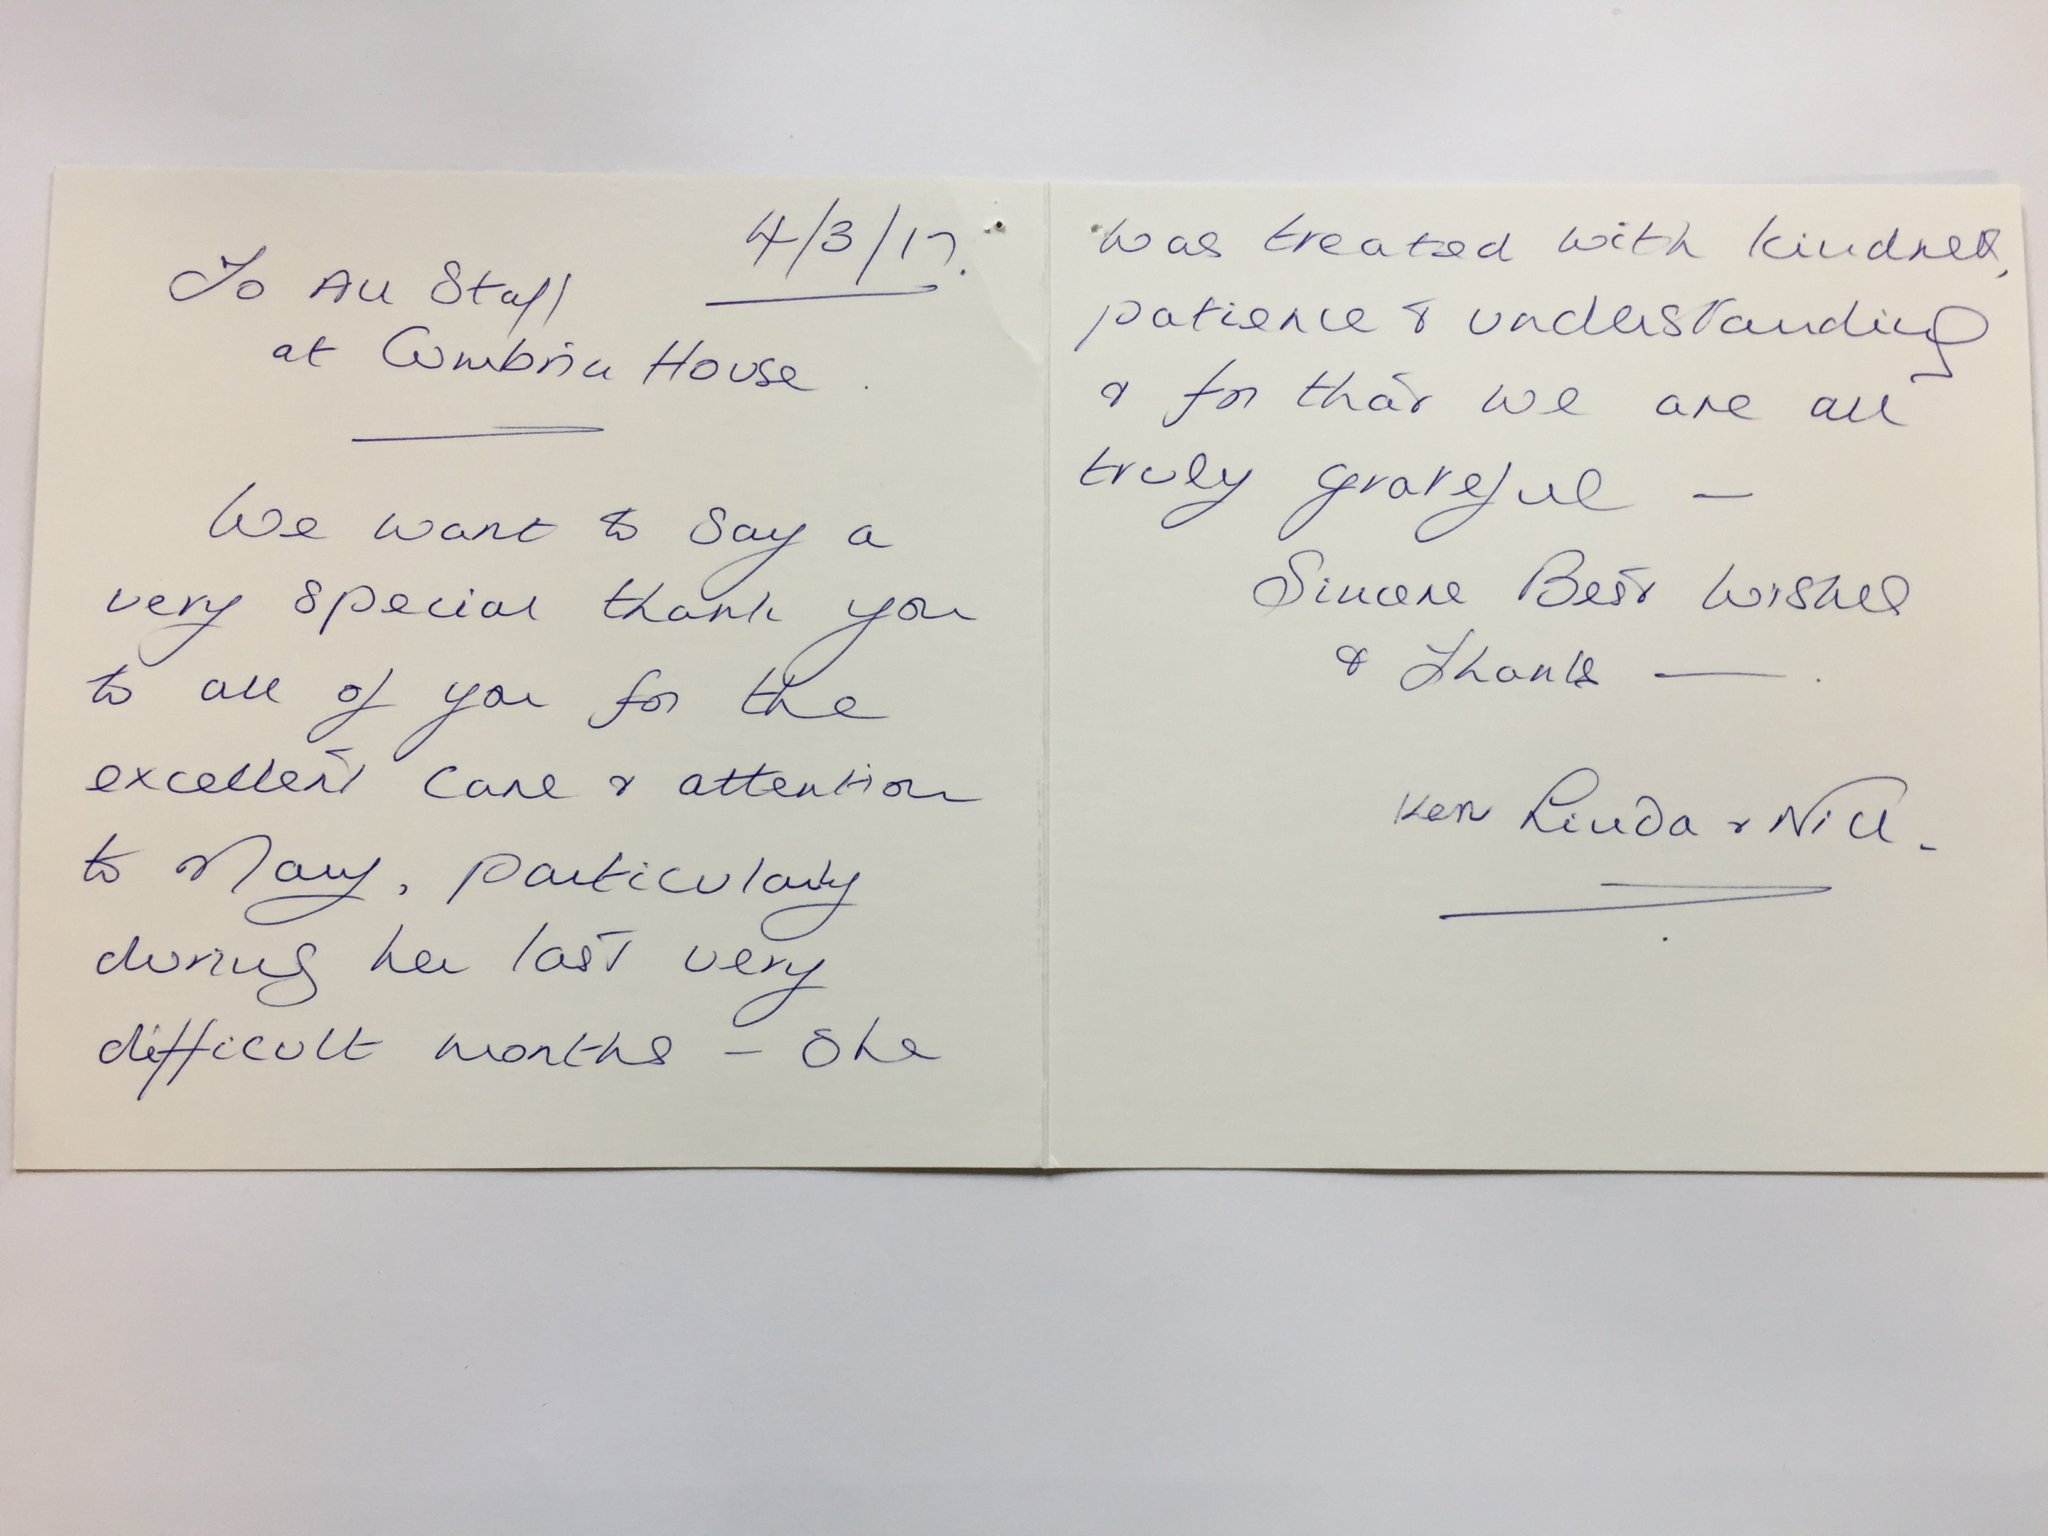 4/3/17.
To All Staff
at Cumbria House.
We want to say a
very special thank you
to all of you for the
excellent care & attention
to Mary, particularly
during her last very
difficult months – She
was treated with kindness,
patience & understanding
& for that we are all
truly grateful –
Sincere Best Wishes
& Thanks —
Ken Linda &